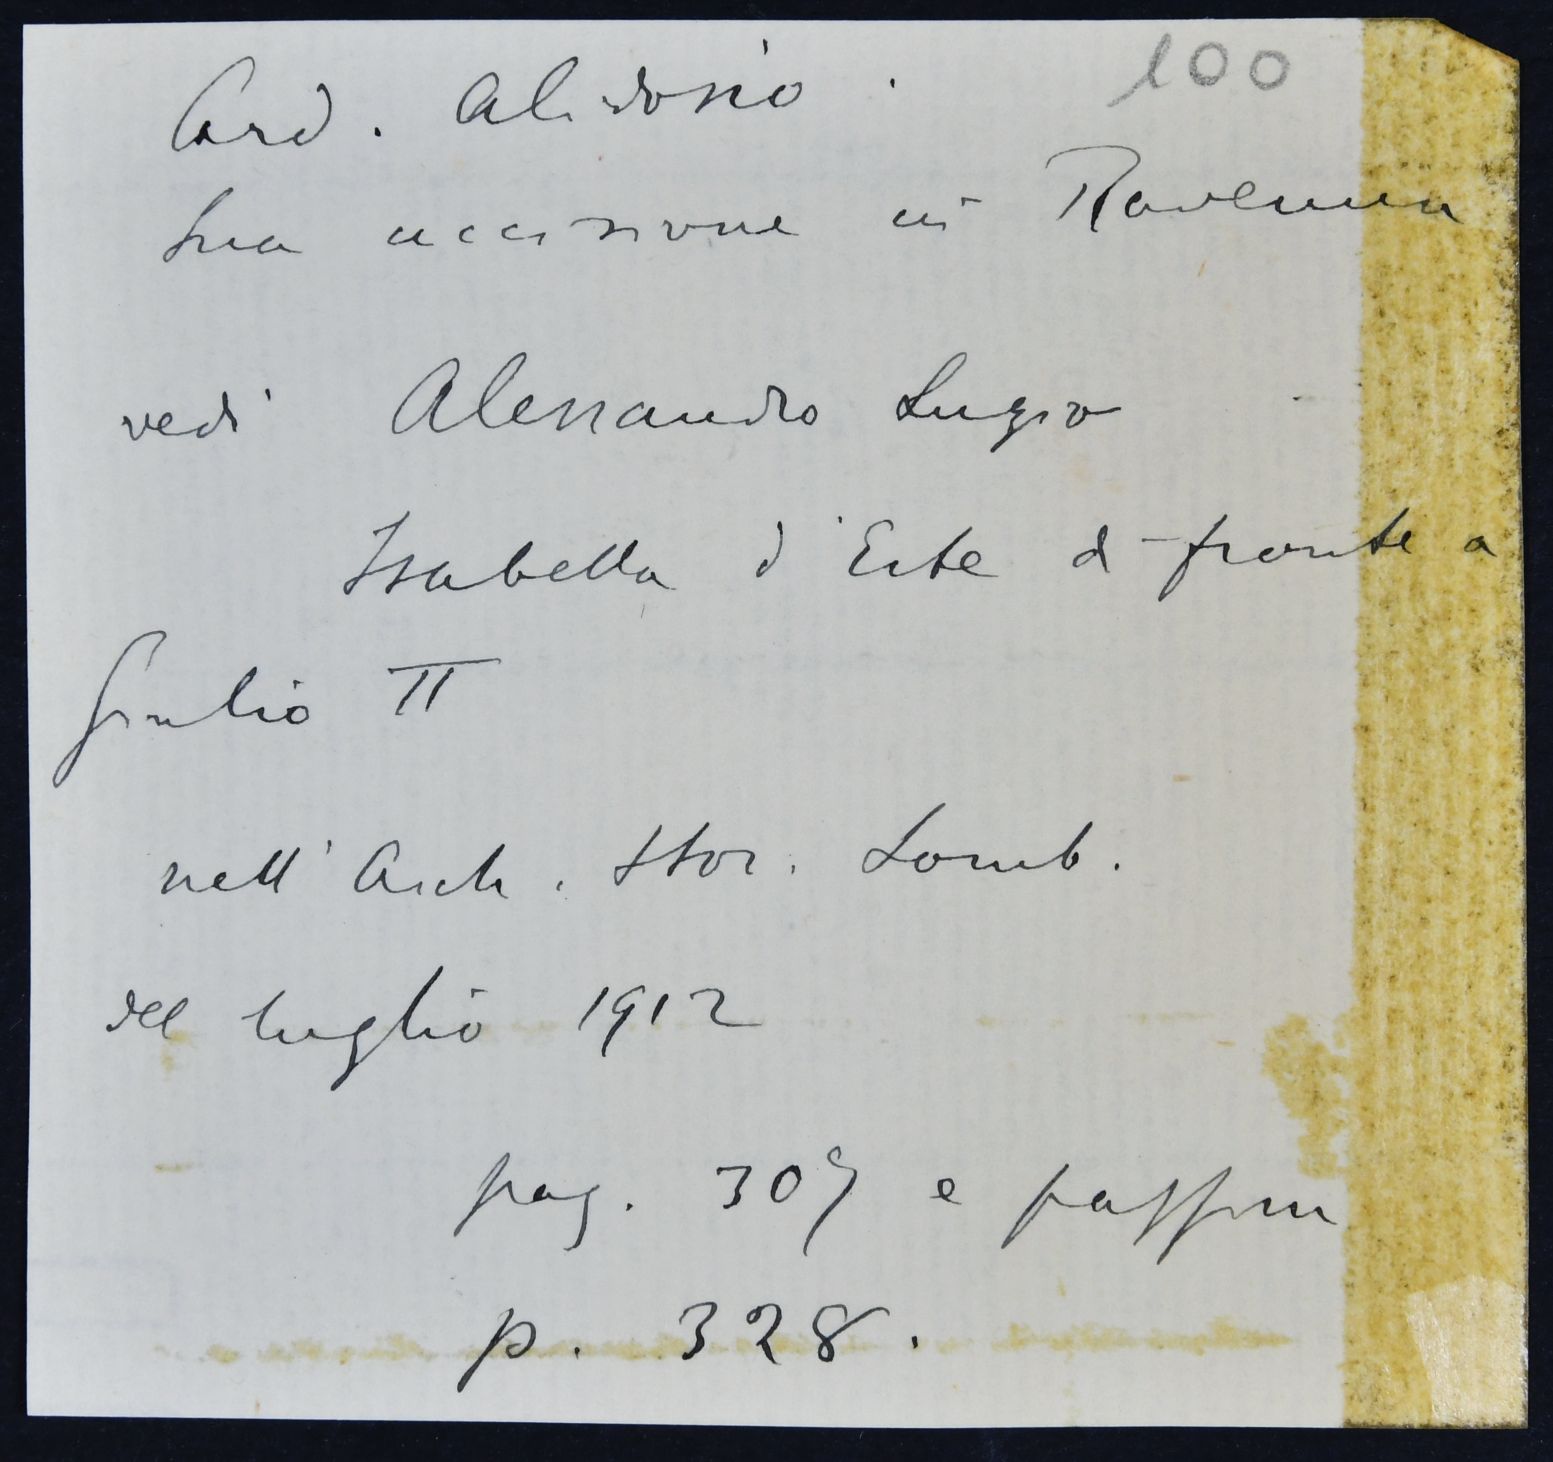 100
Card. Alidosio.
Sua uccisione in Ravenna
vedi Alessandro Luzio
Isabella d'Este di fronte a
Giulio II
nell'Arch. Stor. Lomb.
del luglio 1912
pag. 309 e passim
p. 328.